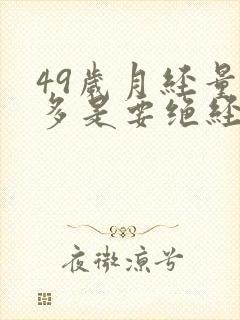 49歳月经量
多是要绝经
夜微凉兮